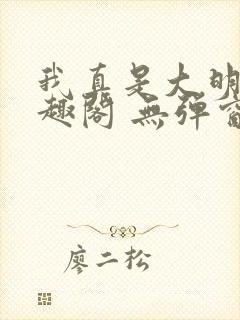 我真是大明
趣閣 無彈窗
廖二松